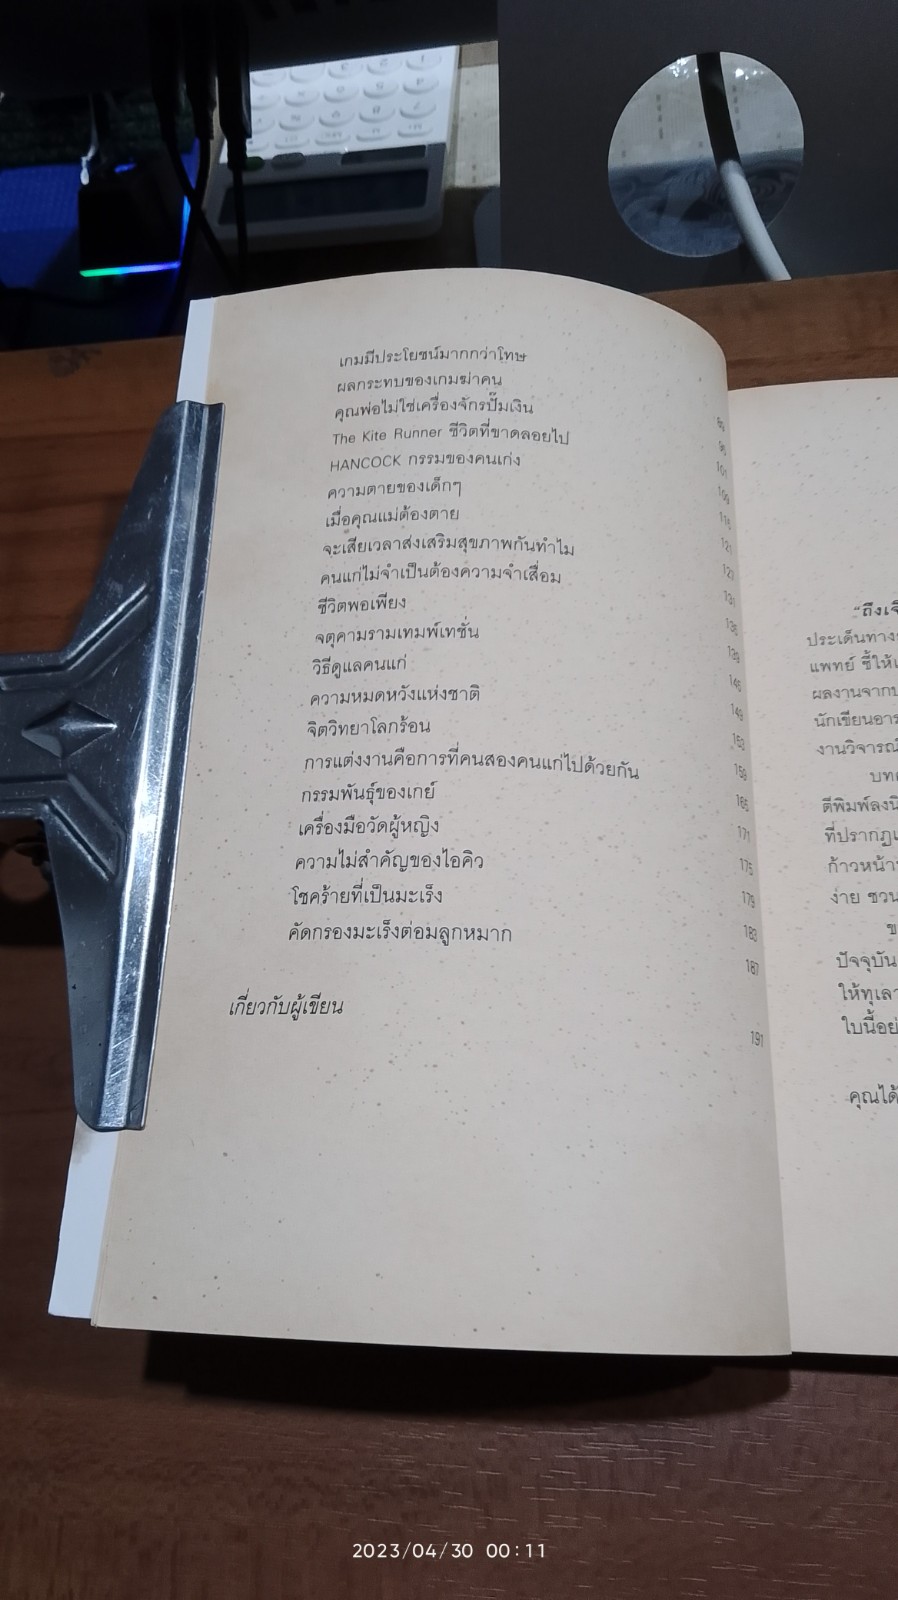 เกมมีประโยชน์มากกว่าโทษ
ผลกระทบของเกมฆ่าคน
คุณพ่อไม่ใช่เครื่องจักรปั๊มเงิน
The Kite Runner ชีวิตที่ขาดลอยไป
HANCOCK กรรมของคนเก่ง
ความตายของเด็กๆ
เมื่อคุณแม่ต้องตาย
จะเสียเวลาส่งเสริมสุขภาพกันทำไม
คนแก่ไม่จำเป็นต้องความจำเสื่อม
ชีวิตพอเพียง
จตุคามรามเทมพ์เทชั่น
วิธีดูแลคนแก่
ความหมดหวังแห่งชาติ
จิตวิทยาโลกร้อน
การแต่งงานคือการที่คนสองคนแก่ไปด้วยกัน
กรรมพันธุ์ของเกย์
เครื่องมือวัดผู้หญิง
ความไม่สำคัญของไอคิว
โชคร้ายที่เป็นมะเร็ง
คัดกรองมะเร็งต่อมลูกหมาก
เกี่ยวกับผู้เขียน
89
95
101
109
115
121
127
131
135
139
145
149
153
159
165
171
175
179
183
187
191
"ถึงเจ
ประเด็นทาง
แพทย์ ชี้ให้
ผลงานจาก
นักเขียนอา
งานวิจารณ์
บท
ตีพิมพ์ลง
ที่ปรากฏ
ก้าวหน้า
ง่าย ชวน
ข
ปัจจุบัน
ให้ทุเลา
ใบนี้อย่
คุณได้
2023/04/30 00:11